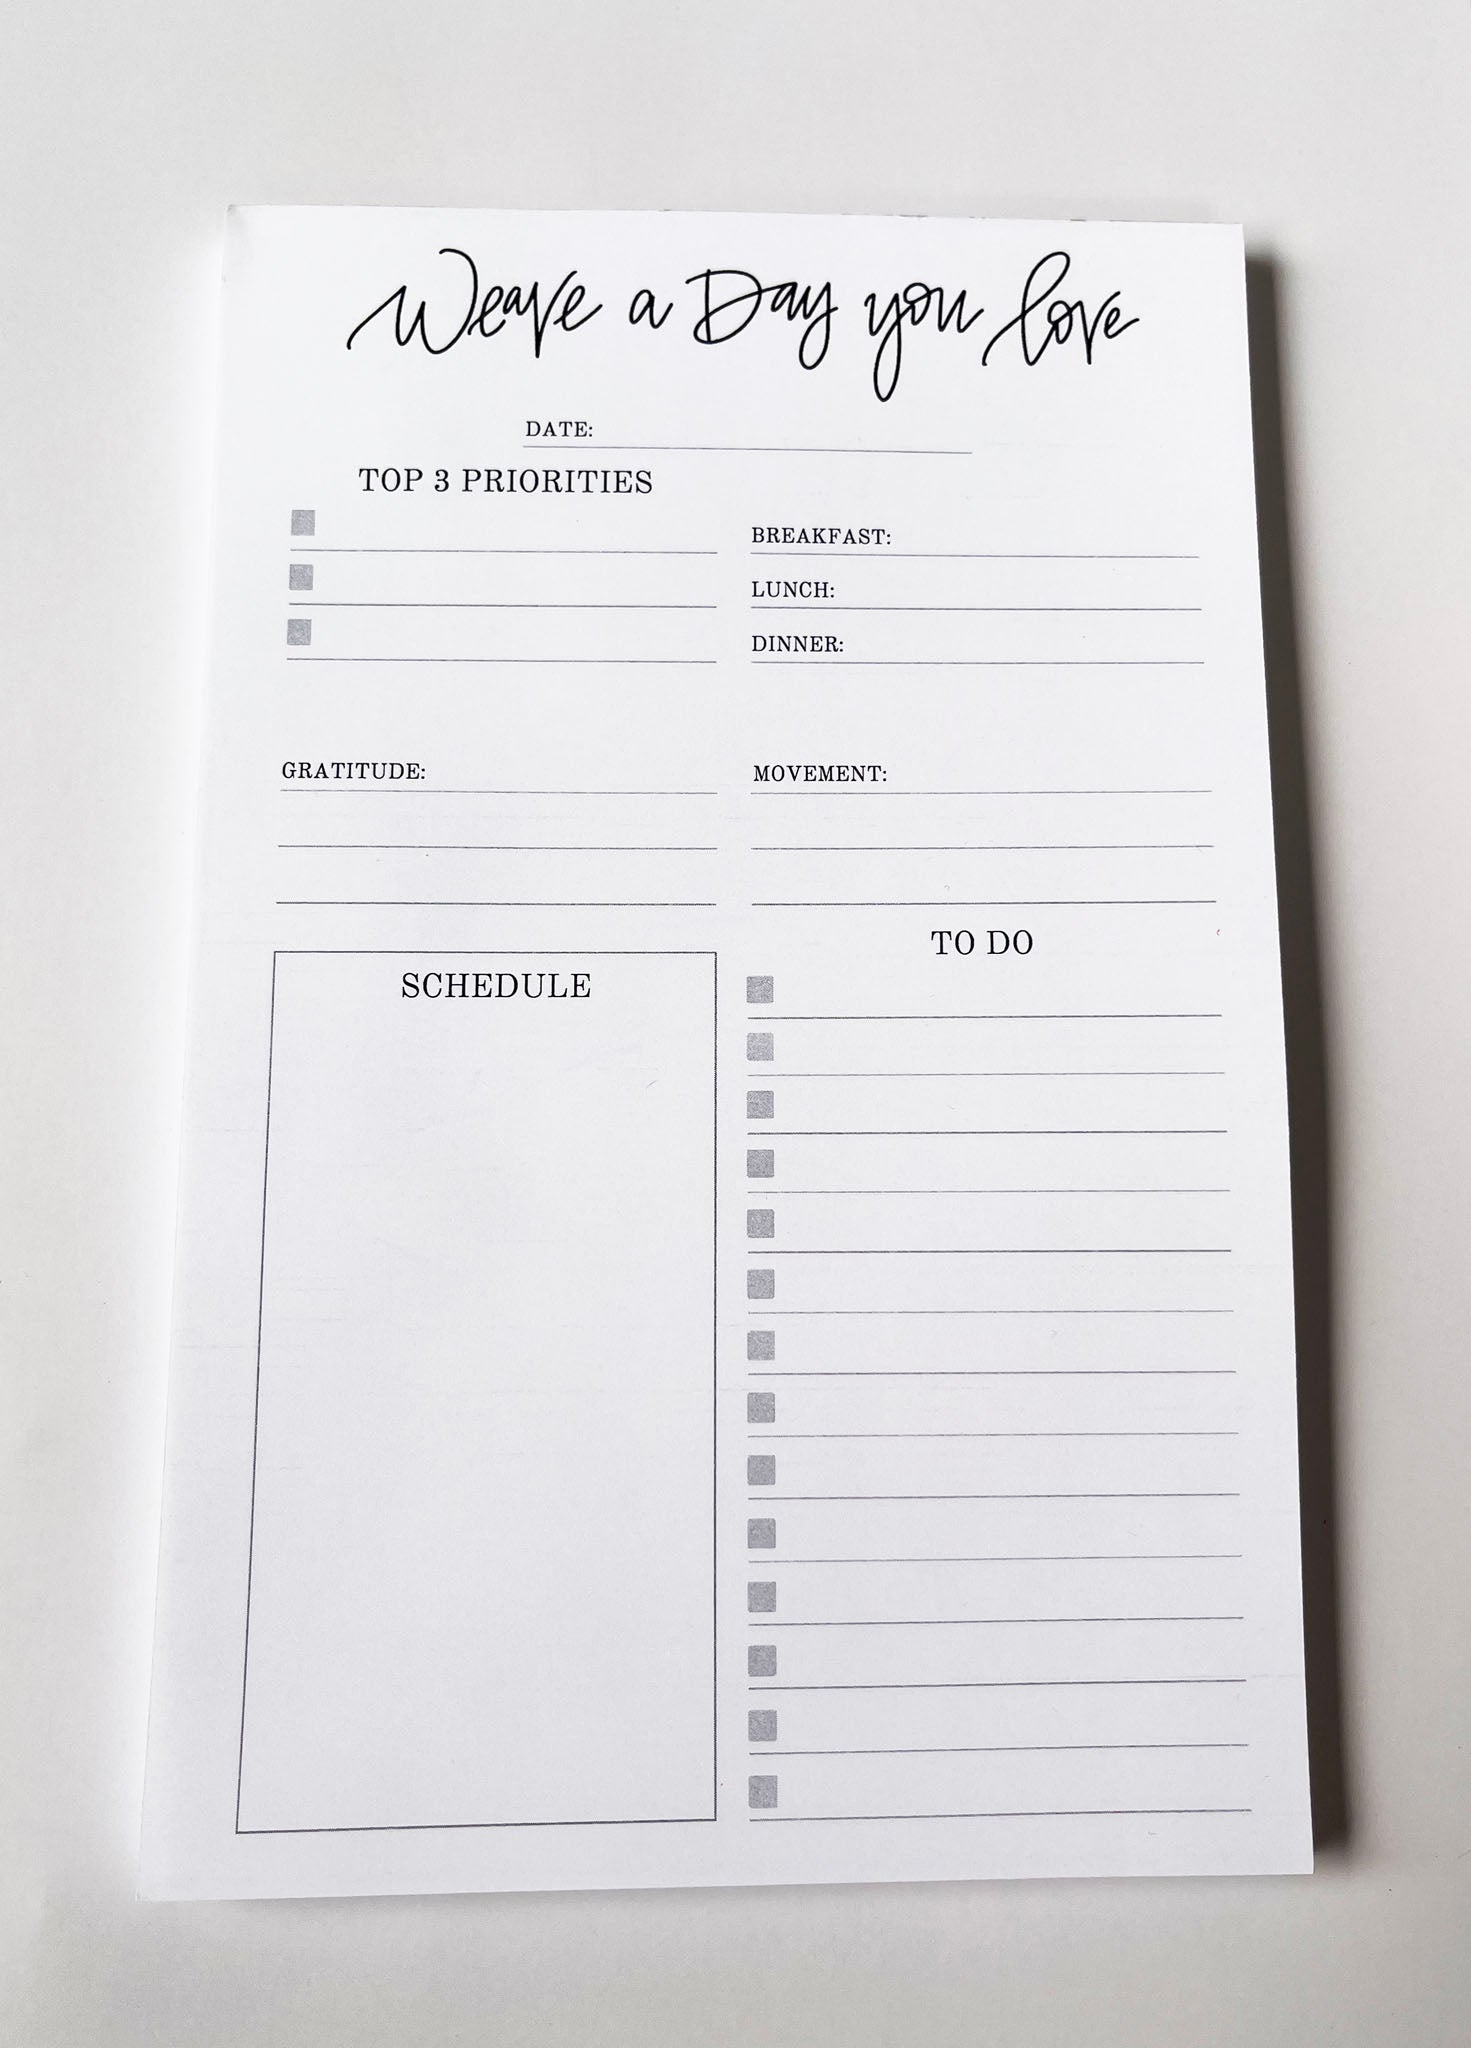 Weave a Day you love
DATE:
TOP 3 PRIORITIES
BREAKFAST:
LUNCH:
DINNER:
GRATITUDE:
MOVEMENT:
SCHEDULE
TO DO